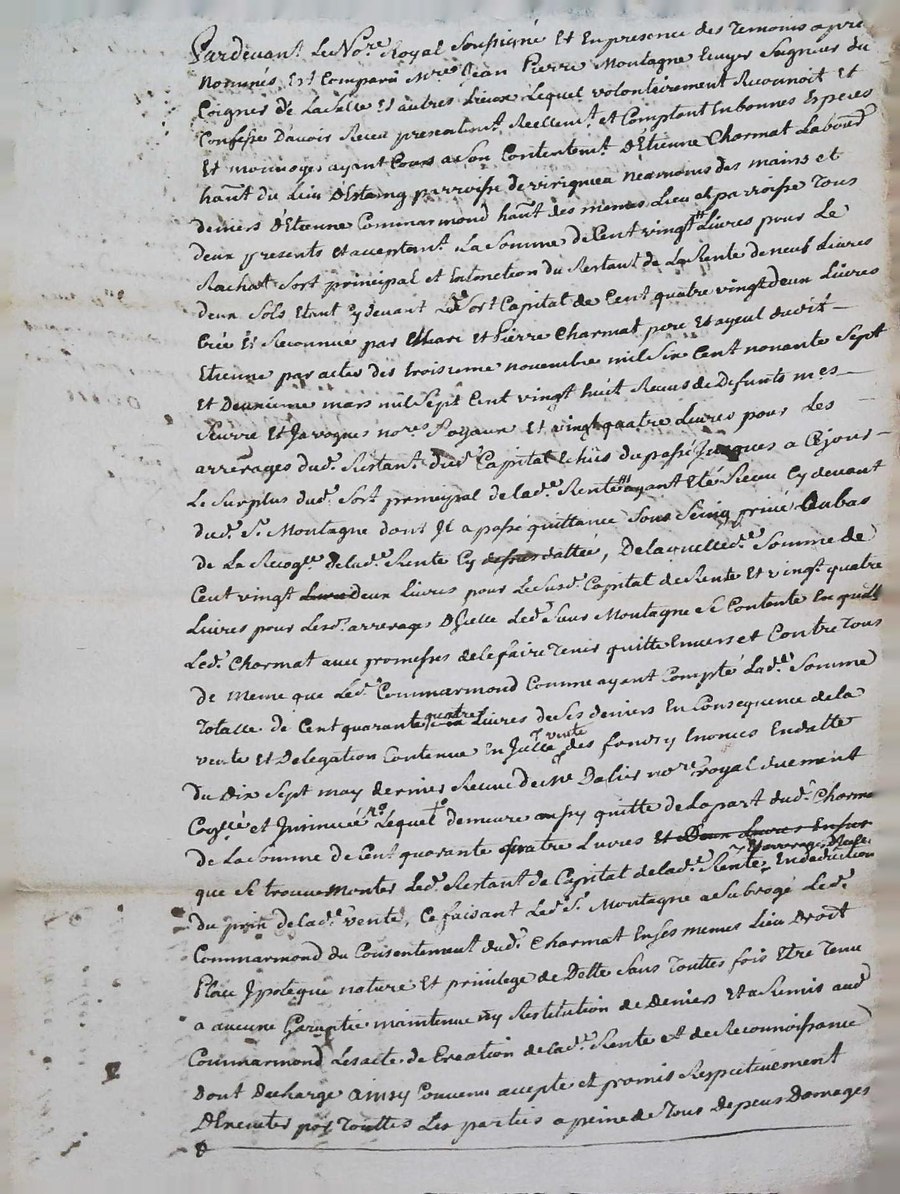 Pardevant Le No.re Royal Soussigné Et En presence des Temoins apres
Nommés Est Comparu M.re Jean Pierre Montagne Ecuyer Seigneur du
Coigner de Lasalle Et autres Lieux Lequel volontairement Reconnoit Et
Confesse D'avoir Receu presentem.t Reellem.t et Comptant En bonnes Especes
Et monnoyes ayant Cours a son Contentem.t D'Etienne Charmat Labour
hañt du Lieu D'Estaing parroisse de neanmoins des mains et
deniers d'Etienne Commarmond hañt des memes Lieu et parroisse Tous
deux presents et acceptant La Somme de Cent vingt Livres pour Le
Rachat Sort principal et Extinction du Restant de La Rente de neuf Livres
deux Sols Etant Cy devant Led. Sort Capital de Cent quatre vingt deux Livres
Créé Et Reconnue par Et Pierre Charmat pere Et ayeul dudit
Etienne par actes des troisieme novembre mil Six Cent nonante Sept
Et Deuxieme mars mil Sept Cent vingt huit Receus de Defunts m.es
Et Javogues no.res Royaux Et vingt quatre Livres pour Les
arrerages dud. Restant dud. Capital Echûs du passé Jusques a Cejour
Le Surplus dud. Sort principal de lad.e Rente ayant Eté Receu Cy devant
dud. S.r Montagne dont Il a passé quittance Sous Seing privé Aubas
de La de lad.e Rente Cy dattée, De laquelle d.e Somme de
Cent vingt deux Livres pour Le Susd. Capital de Rente Et vingt quatre
Livres pour Lesd. arrerages Led. Sieur Montagne Se Contente En quitte
Led. Charmat avec promesses de le faire Tenir quitte Envers et Contre Tous
de meme que Led. Commarmond Comme ayant Compté Lad.e Somme
Totalle de Cent quarante quatre Livres de Ses deniers En Consequence de la
vente Et Delegation Contenue En Jcelle vente des fonds y Enoncés En datte
du Dix Sept may dernier Receue de M.e Dalier no.re royal duement
Coll.é et Jnsinuée Lequel demeure aussy quitte de la part dud. Charmat
de La Somme de Cent quarante quatre Livres Et Deux Livres
que Se trouve monter Led. Restant de Capital de lad.e Rente Et arrerages En deduction
du prix de lad.e vente, Ce faisant Led. S.r Montagne a Subrogé Led.
Commarmond du Consentement dud. Charmat En Ses memes Lieu Droit
Place Jpoteque nature Et privilege de Dette Sans Touttes fois Etre Tenu
a aucune Garantie maintenue ny Restitution de deniers Et a Remis aud.
Commarmond Les actes de Creation de lad.e Rente et de Reconnoissance
Dont Decharge ainsy Convenu accepté et promis Respectivement
D'Executer par Touttes Les parties a peine de Tous Depens Domages